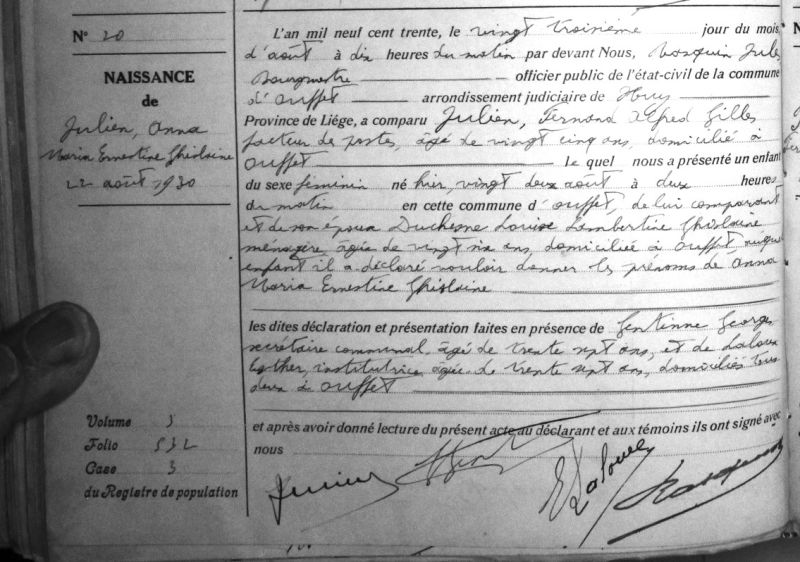 N° 20
NAISSANCE
de
Julien, Anna
Maria Ernestine Ghislaine
22 août 1930
L'an mil neuf cent trente, le vingt troisième jour du mois
d'août à dix heures du matin par devant Nous, Mosquin Jules
Bourgmestre officier public de l'état-civil de la commune
d'Ouffet arrondissement judiciaire de Huy
Province de Liége, a comparu Julien, Fernand Alfred Gilles
facteur de postes, âgé de vingt cinq ans, domicilié à
Ouffet le quel nous a présenté un enfant
du sexe féminin né hier, vingt deux août à deux heures
du matin en cette commune d'Ouffet, de lui comparant
et de son épouse Duchesne Louise Lambertine Ghislaine
ménagère âgée de vingt six ans domiciliée à Ouffet auquel
enfant il a déclaré vouloir donner les prénoms de Anna
Maria Ernestine Ghislaine
les dites déclaration et présentation faites en présence de Gentinne Georges
secrétaire communal, âgé de trente sept ans, et de Laloux
Esther, institutrice, âgée de trente sept ans, domiciliés tous
deux à Ouffet
et après avoir donné lecture du présent acte au déclarant et aux témoins ils ont signé avec
nous
Volume 3
Folio 532
Case 3
du Registre de population
Julien
E Laloux